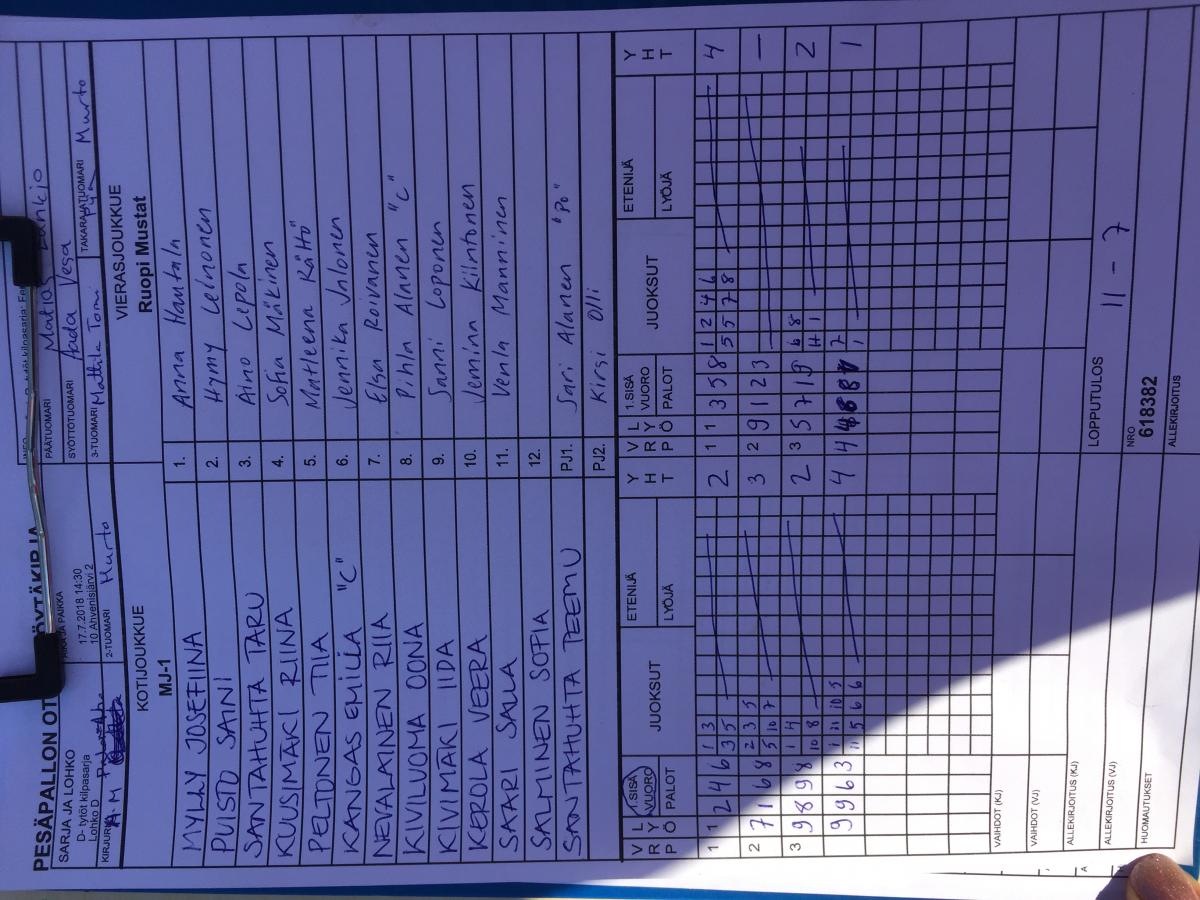 PESÄPALLON OT ÖYTÄKIRJA
SARJA JA LOHKO
D- tytöt kilpasarja
Lohko D
17.7.2018 14:30
10 Ahvenisjärvi 2
PÄÄTUOMARI Matias
SYÖTTÖTUOMARI Aada Vesa
KIRJURI A M
2-TUOMARI Murto
3-TUOMARI Mattila Tomi
TAKARAJATUOMARI Murto
KOTIJOUKKUE
MJ-1
VIERASJOUKKUE
Ruopi Mustat
MYLLY JOSEFIINA 1. Anna Hantala
PUISTO SAINI 2. Hymy Leinonen
SANTAHUHTA TARU 3. Aino Lepola
KUUSIMÄKI RIINA 4. Sofia Mäkinen
PELTONEN TIA 5. Matleena Rättö
KANGAS EMILIA "C" 6. Jennika Jalonen
NEVALAINEN RIIA 7. Elsa Roivanen
KIVILUOMA OONA 8. Pihla Alanen "C"
KIVIMÄKI IIDA 9. Sanni Loponen
KEROLA VEERA 10. Jemina Kiintonen
SAARI SALLA 11. Venla Manninen
SALMINEN SOFIA 12.
SANTAHUHTA TEEMU PJ1. Sari Alanen "PO"
PJ2. Kirsi Olli
V R P L Y Ö 1.SISÄ VUORO PALOT JUOKSUT ETENIJÄ LYÖJÄ Y H T V R P L Y Ö 1.SISÄ VUORO PALOT JUOKSUT ETENIJÄ LYÖJÄ Y H T
1 1 2 4 6 1 3 2 1 1 3 5 8 1 2 4 6 4
3 5 5 5 7 8
2 7 1 6 8 2 3 5 3 2 9 1 2 3 –
5 10 7
3 9 8 9 8 1 4 2 3 5 7 1 9 6 8 2
10 8 11 1
9 9 6 3 1 11 10 5 4 4 4 7 1
11 5 6 6 1
VAIHDOT (KJ)
VAIHDOT (VJ)
ALLEKIRJOITUS (KJ)
LOPPUTULOS 11 - 7
ALLEKIRJOITUS (VJ)
NRO
618382
HUOMAUTUKSET
ALLEKIRJOITUS